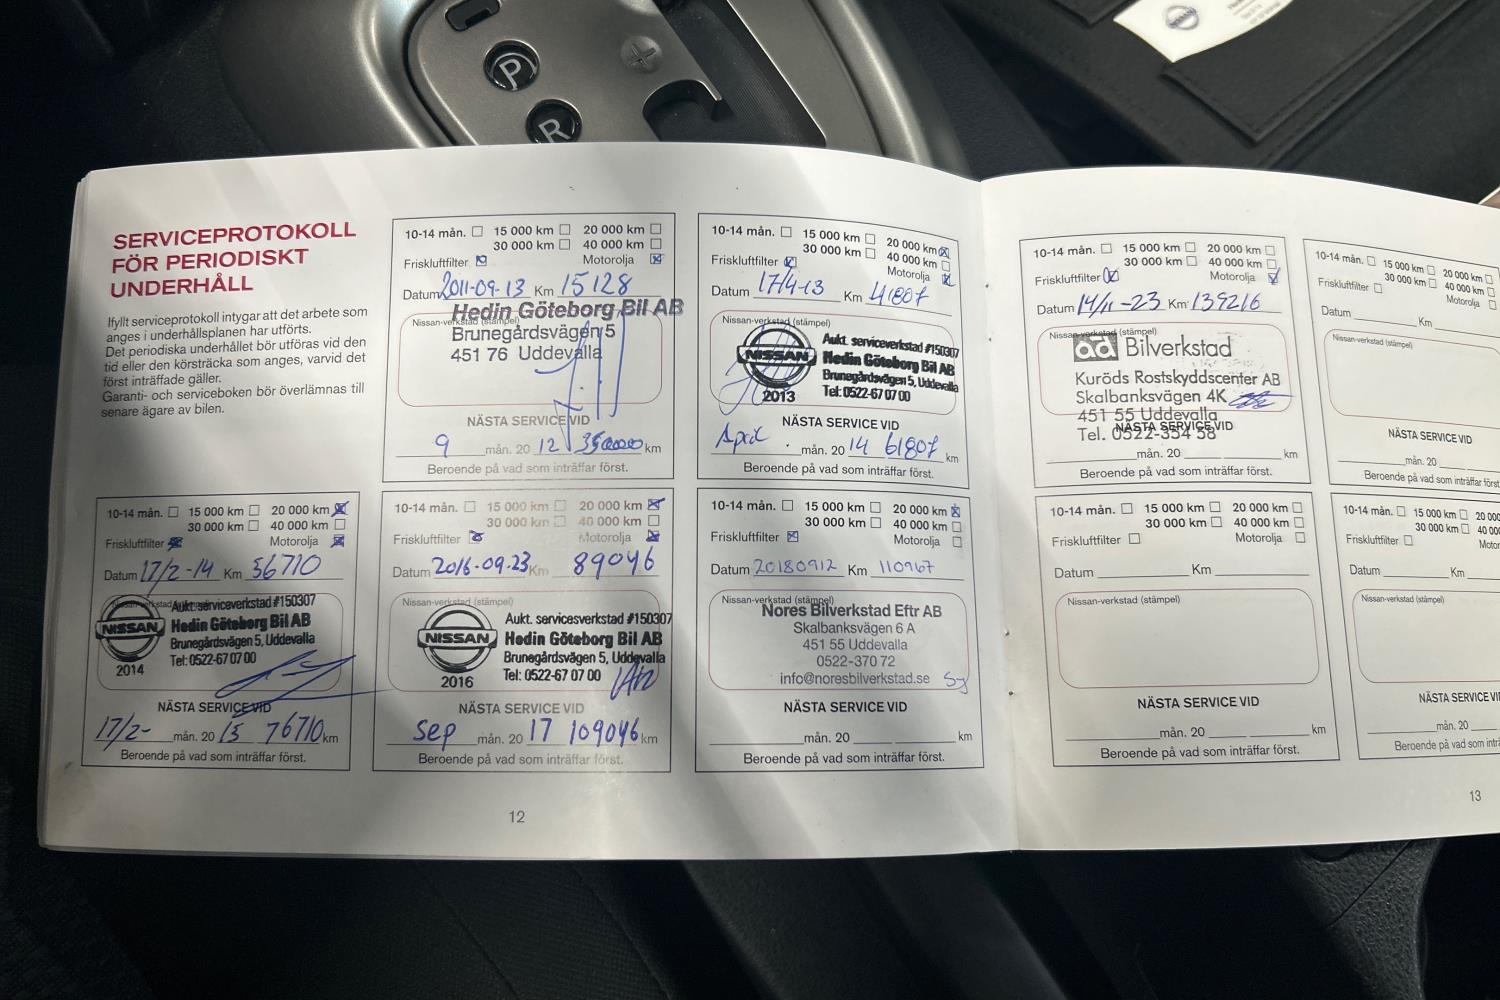 P
R
SERVICEPROTOKOLL
FÖR PERIODISKT
UNDERHÅLL
Ifyllt serviceprotokoll intygar att det arbete som
anges i underhållsplanen har utförts.
Det periodiska underhållet bör utföras vid den
tid eller den körsträcka som anges, varvid det
först inträffade gäller.
Garanti- och serviceboken bör överlämnas till
senare ägare av bilen.
10-14 mån. 15 000 km 20 000 km
30 000 km 40 000 km
Friskluftfilter Motorolja
Datum 2011-09-13 Km 15128
Nissan-verkstad (stämpel)
Hedin Göteborg Bil AB
Brunegårdsvägen 5
451 76 Uddevalla
NÄSTA SERVICE VID
9 mån. 20 12 km
Beroende på vad som inträffar först.
10-14 mån. 15 000 km 20 000 km
30 000 km 40 000 km
Friskluftfilter Motorolja
Datum 17/4-13 Km 41807
Nissan-verkstad (stämpel)
NISSAN
2013
Aukt. serviceverkstad #150307
Hedin Göteborg Bil AB
Brunegårdsvägen 5, Uddevalla
Tel: 0522-67 07 00
NÄSTA SERVICE VID
April mån. 20 14 61807 km
Beroende på vad som inträffar först.
10-14 mån. 15 000 km 20 000 km
30 000 km 40 000 km
Friskluftfilter Motorolja
Datum 17/2-14 Km 56710
NISSAN
2014
Aukt. serviceverkstad #150307
Hedin Göteborg Bil AB
Brunegårdsvägen 5, Uddevalla
Tel: 0522-67 07 00
NÄSTA SERVICE VID
17/2- mån. 20 15 76710 km
Beroende på vad som inträffar först.
10-14 mån. 15 000 km 20 000 km
30 000 km 40 000 km
Friskluftfilter Motorolja
Datum 2016-09-23 Km 89046
Nissan-verkstad (stämpel)
NISSAN
2016
Aukt. servicesverkstad #150307
Hedin Göteborg Bil AB
Brunegårdsvägen 5, Uddevalla
Tel: 0522-67 07 00
NÄSTA SERVICE VID
Sep mån. 20 17 109046 km
Beroende på vad som inträffar först.
10-14 mån. 15 000 km 20 000 km
30 000 km 40 000 km
Friskluftfilter Motorolja
Datum 20180912 Km 110967
Nissan-verkstad (stämpel)
Nores Bilverkstad Eftr AB
Skalbanksvägen 6 A
451 55 Uddevalla
0522-370 72
info@noresbilverkstad.se
NÄSTA SERVICE VID
mån. 20 km
Beroende på vad som inträffar först.
12
10-14 mån. 15 000 km 20 000 km
30 000 km 40 000 km
Friskluftfilter Motorolja
Datum 14/11-23 Km 139216
Nissan-verkstad (stämpel)
ad Bilverkstad
Kuröds Rostskyddscenter AB
Skalbanksvägen 4K
451 55 Uddevalla
NÄSTA SERVICE VID
Tel. 0522-354 58
mån. 20 km
Beroende på vad som inträffar först.
10-14 mån. 15 000 km 20 000
30 000 km 40 000 km
Friskluftfilter Motorolja
Datum Km
Nissan-verkstad (stämpel)
NÄSTA SERVICE VID
mån. 20
Beroende på vad som inträffar först.
10-14 mån. 15 000 km 20 000 km
30 000 km 40 000 km
Friskluftfilter Motorolja
Datum Km
Nissan-verkstad (stämpel)
NÄSTA SERVICE VID
mån. 20 km
Beroende på vad som inträffar först.
10-14 mån. 15 000 km
30 000 km
Friskluftfilter
Datum Km
Nissan-verkstad (stämpel)
NÄSTA SERVICE
mån. 20
Beroende på vad som inträffar
13
NISSAN